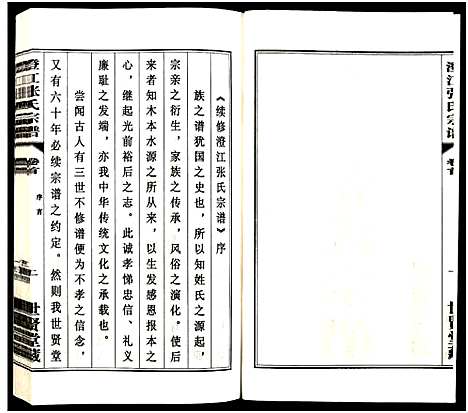 澄江张氏宗谱
卷首
一
世贤堂藏
《续修澄江张氏宗谱》序
族之谱犹国之史也，所以知姓氏之源起，
宗亲之衍生，家族之传承，风俗之演化。使后
来者知木本水源之所从来，以生发感恩报本之
心，继起光前裕后之志。此诚孝悌忠信、礼义
廉耻之发端，亦我中华传统文化之承载也。
尝闻古人有三世不修谱便为不孝之信念，
又有六十年必续宗谱之约定。然则我世贤堂
澄江张氏宗谱
卷首
序言
二
世贤堂藏